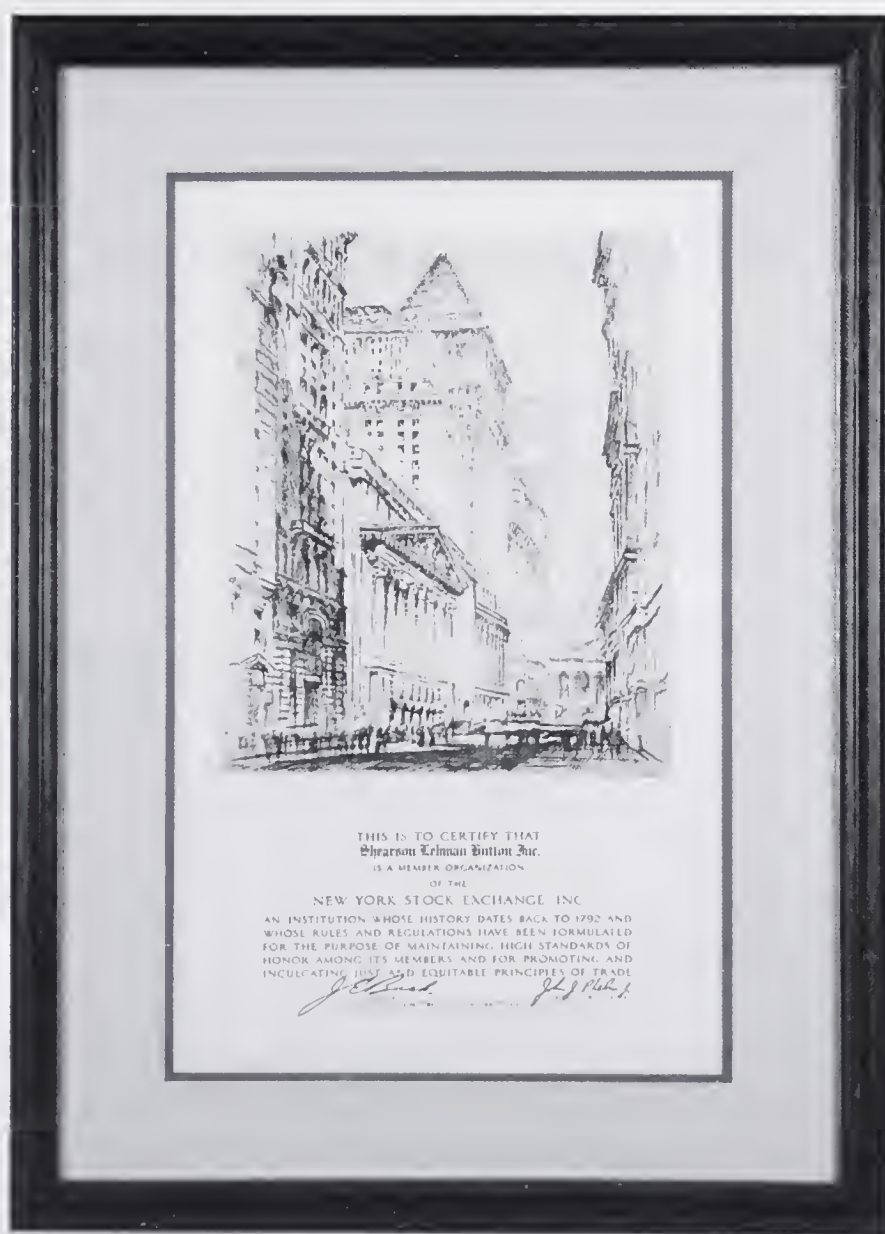 THIS IS TO CERTIFY THAT
Shearson Lehman Hutton Inc.
IS A MEMBER ORGANIZATION
OF THE
NEW YORK STOCK EXCHANGE INC
AN INSTITUTION WHOSE HISTORY DATES BACK TO 1792 AND
WHOSE RULES AND REGULATIONS HAVE BEEN FORMULATED
FOR THE PURPOSE OF MAINTAINING HIGH STANDARDS OF
HONOR AMONG ITS MEMBERS AND FOR PROMOTING AND
INCULCATING JUST AND EQUITABLE PRINCIPLES OF TRADE
John J. Phelan Jr.